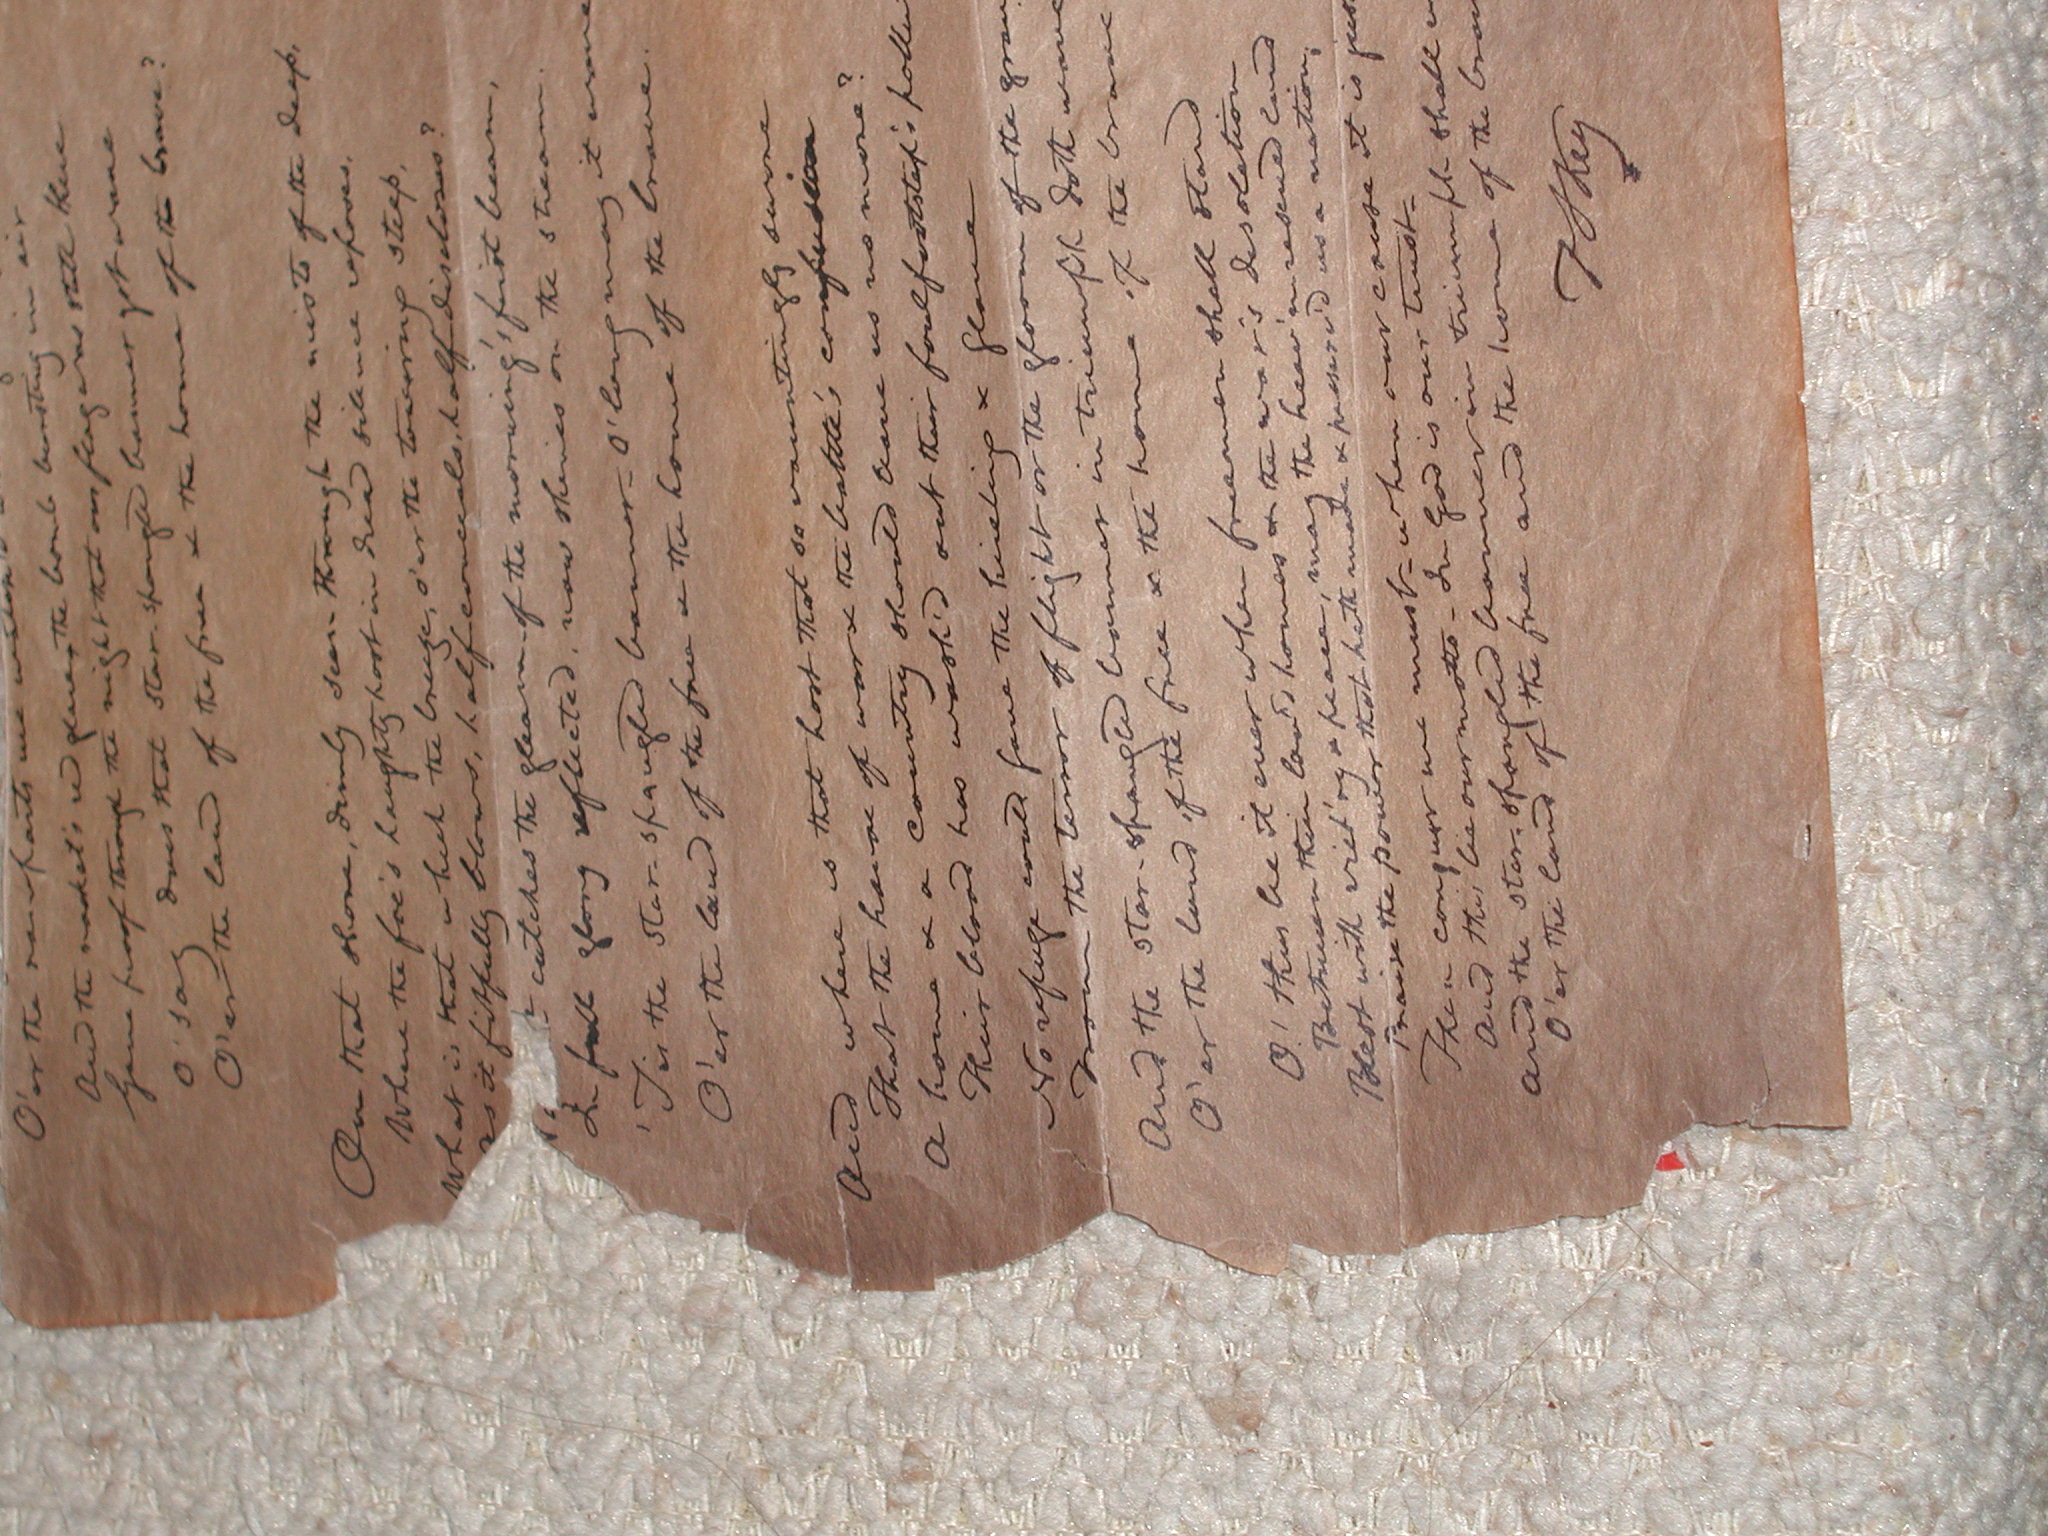 O'er the ramparts we watch'd
And the rocket's red glare, the bomb bursting in air
Gave proof through the night that our flag was still there
O' say does that star-spangled banner yet wave
O'er the land of the free & the home of the brave?
On that shore, dimly seen through the mists of the deep,
Where the foe's haughty host in dread silence reposes.
What is that which the breeze, o'er the towering steep,
as it fitfully blows, half conceals, half discloses?
catches the gleam of the morning's first beam,
In full glory reflected, now shines on the stream.
'Tis the star-spangled banner - O' long may it wave
O'er the land of the free & the home of the brave.
And where is that host that so vauntingly swore
That the havoc of war & the battle's confusion
A home & a country should leave us no more?
Their blood has wash'd out their foul footstep's
No refuge could save the hireling & slave
From the terror of flight or the gloom of the
And the star-spangled banner in triumph doth wave
O'er the land of the free & the home of the brave
O! thus be it ever when freemen shall stand
Between their lov'd homes & the war's desolation
Blest with vict'ry & peace, may the heav'n rescued land
Praise the power that hath made & preserv'd us a nation,
Then conquer we must - when our cause it is
And this be our motto - In God is our trust -
And the star-spangled banner in triumph shall
O'er the land of the free and the home of the
F S Key